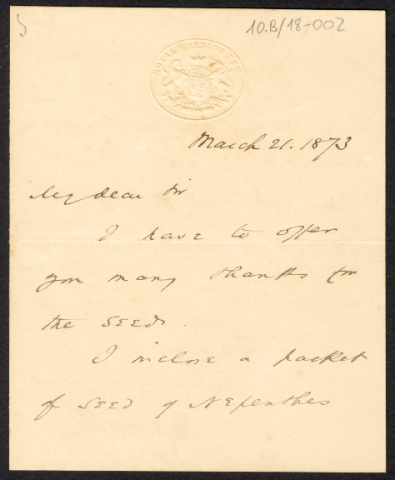 10.B/18-002
ROYAL
March 21. 1873
My dear Sir
I have to offer
you many thanks for
the seeds.
I inclose a packet
of seed of Nepenthes